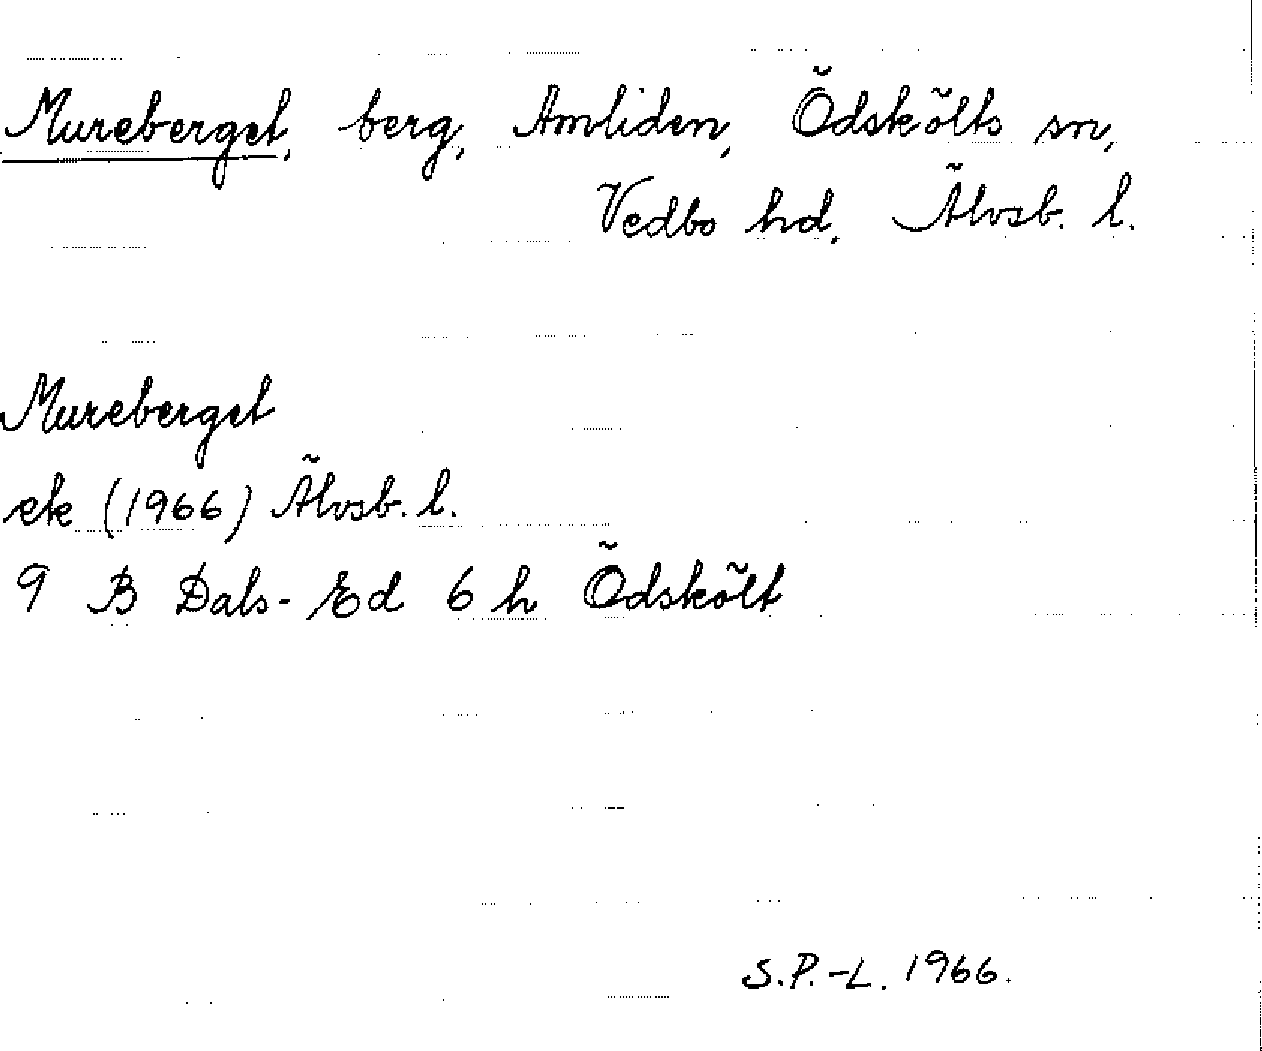 Mureberget, berg, Amliden, Ödskölts sn,
Vedbo hd, Älvsb. l.
Mureberget
ek (1966) Älvsb. l.
9 B Dals-Ed 6 h Ödskölt
S.P.-L. 1966.